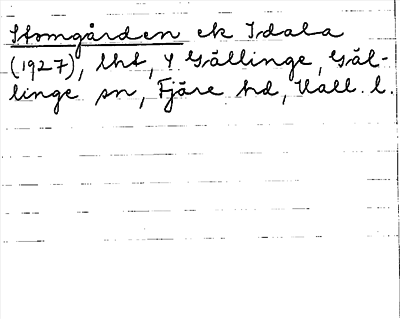 Stomgården ek Idala
(1927), lht, Y Gällinge, Gäl-
linge sn, Fjäre hd, Hall. l.